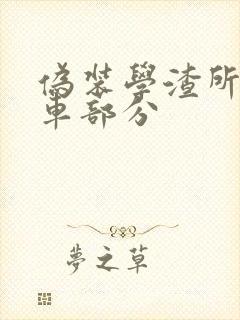 偽裝學渣所
車部分
夢之草